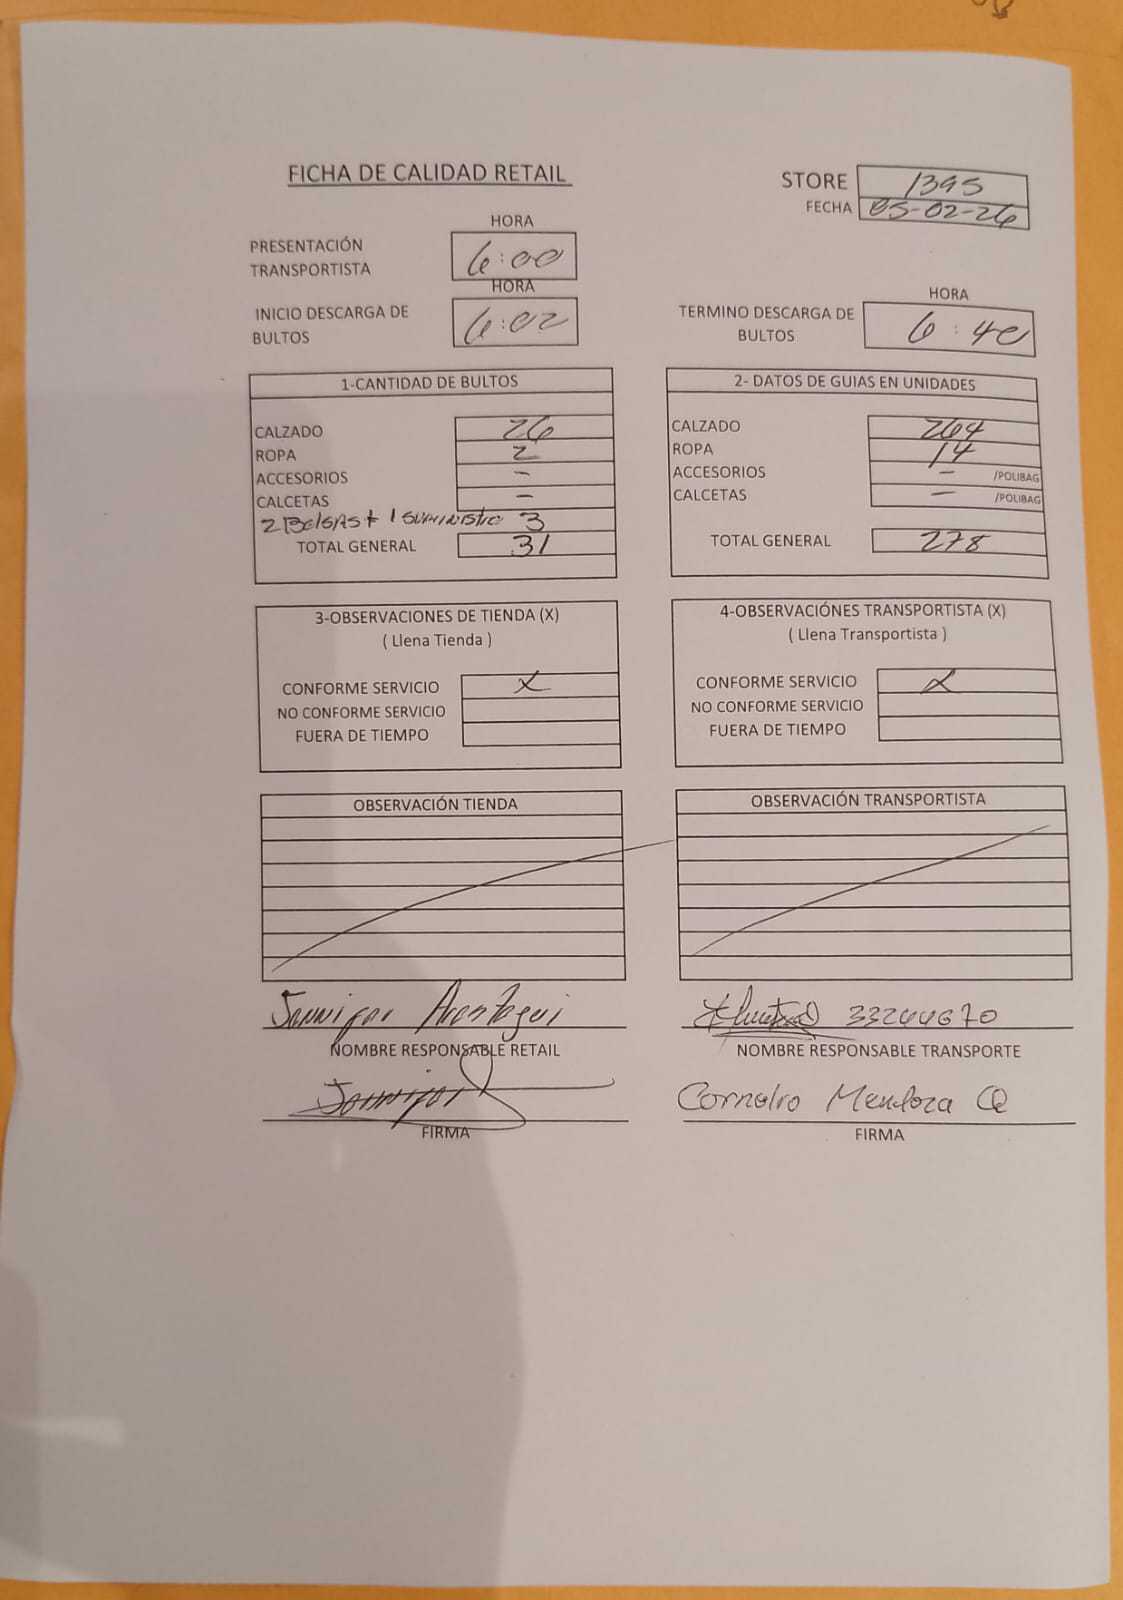 FICHA DE CALIDAD RETAIL
STORE 1395
FECHA 05-02-26
HORA
PRESENTACIÓN TRANSPORTISTA 6:00
HORA
INICIO DESCARGA DE BULTOS 6:02
HORA
TERMINO DESCARGA DE BULTOS 6:40
1-CANTIDAD DE BULTOS
CALZADO 26
ROPA 2
ACCESORIOS -
CALCETAS -
2 Bolsas + 1 suministro 3
TOTAL GENERAL 31
2- DATOS DE GUIAS EN UNIDADES
CALZADO 264
ROPA 14
ACCESORIOS - /POLIBAG
CALCETAS - /POLIBAG
TOTAL GENERAL 278
3-OBSERVACIONES DE TIENDA (X)
( Llena Tienda )
CONFORME SERVICIO X
NO CONFORME SERVICIO
FUERA DE TIEMPO
4-OBSERVACIÓNES TRANSPORTISTA (X)
( Llena Transportista )
CONFORME SERVICIO X
NO CONFORME SERVICIO
FUERA DE TIEMPO
OBSERVACIÓN TIENDA
OBSERVACIÓN TRANSPORTISTA
NOMBRE RESPONSABLE RETAIL
FIRMA
33244670
NOMBRE RESPONSABLE TRANSPORTE
Mendoza
FIRMA